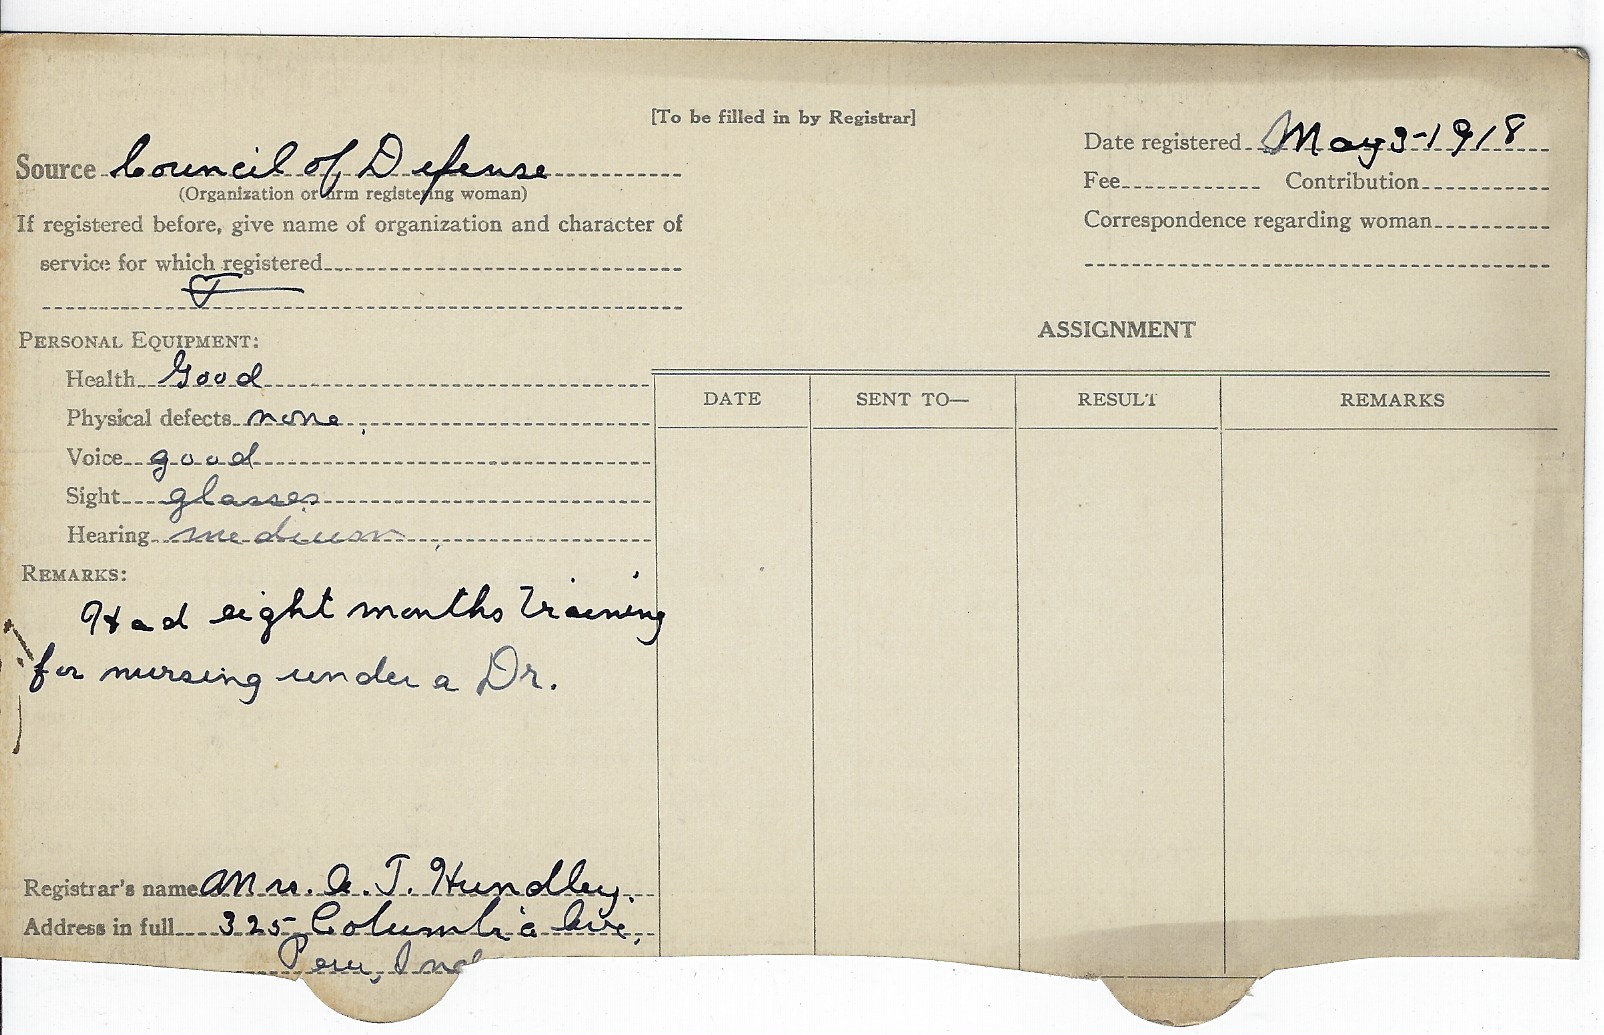 [To be filled in by Registrar]
Source Council of Defense
(Organization or firm registering woman)
If registered before, give name of organization and character of
service for which registered
Date registered May 3-1918
Fee Contribution
Correspondence regarding woman
PERSONAL EQUIPMENT:
Health Good
Physical defects none
Voice good
Sight glasses
Hearing medium
REMARKS:
Had eight months Training
for nursing under a Dr.
Registrar's name Mrs. A. T. Hundley.
Address in full 325 Columbia Ave,
Peru, Ind
ASSIGNMENT
DATE SENT TO— RESULT REMARKS